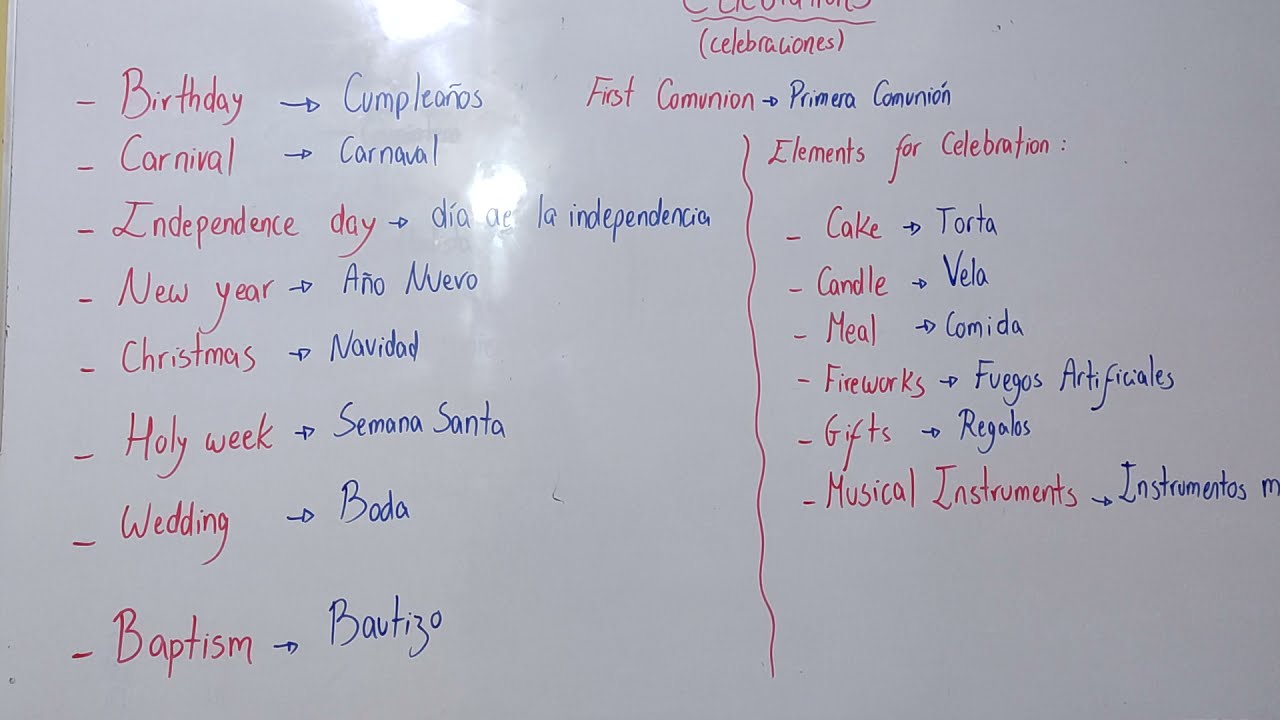 (celebraciones)
- Birthday → Cumpleaños
First Comunion → Primera Comunión
- Carnival → Carnaval
- Independence day → día de la independencia
- New year → Año Nuevo
- Christmas → Navidad
- Holy week → Semana Santa
- Wedding → Boda
- Baptism → Bautizo
Elements for Celebration :
- Cake → Torta
- Candle → Vela
- Meal → Comida
- Fireworks → Fuegos Artificiales
- Gifts → Regalos
- Musical Instruments → Instrumentos m